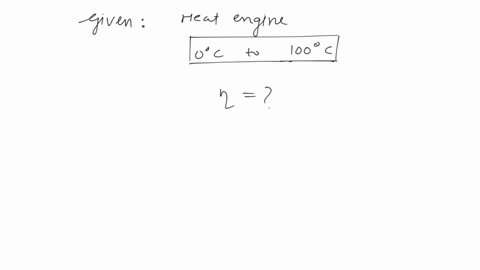 Given: Heat engine
0°C to 100°C
η = ?